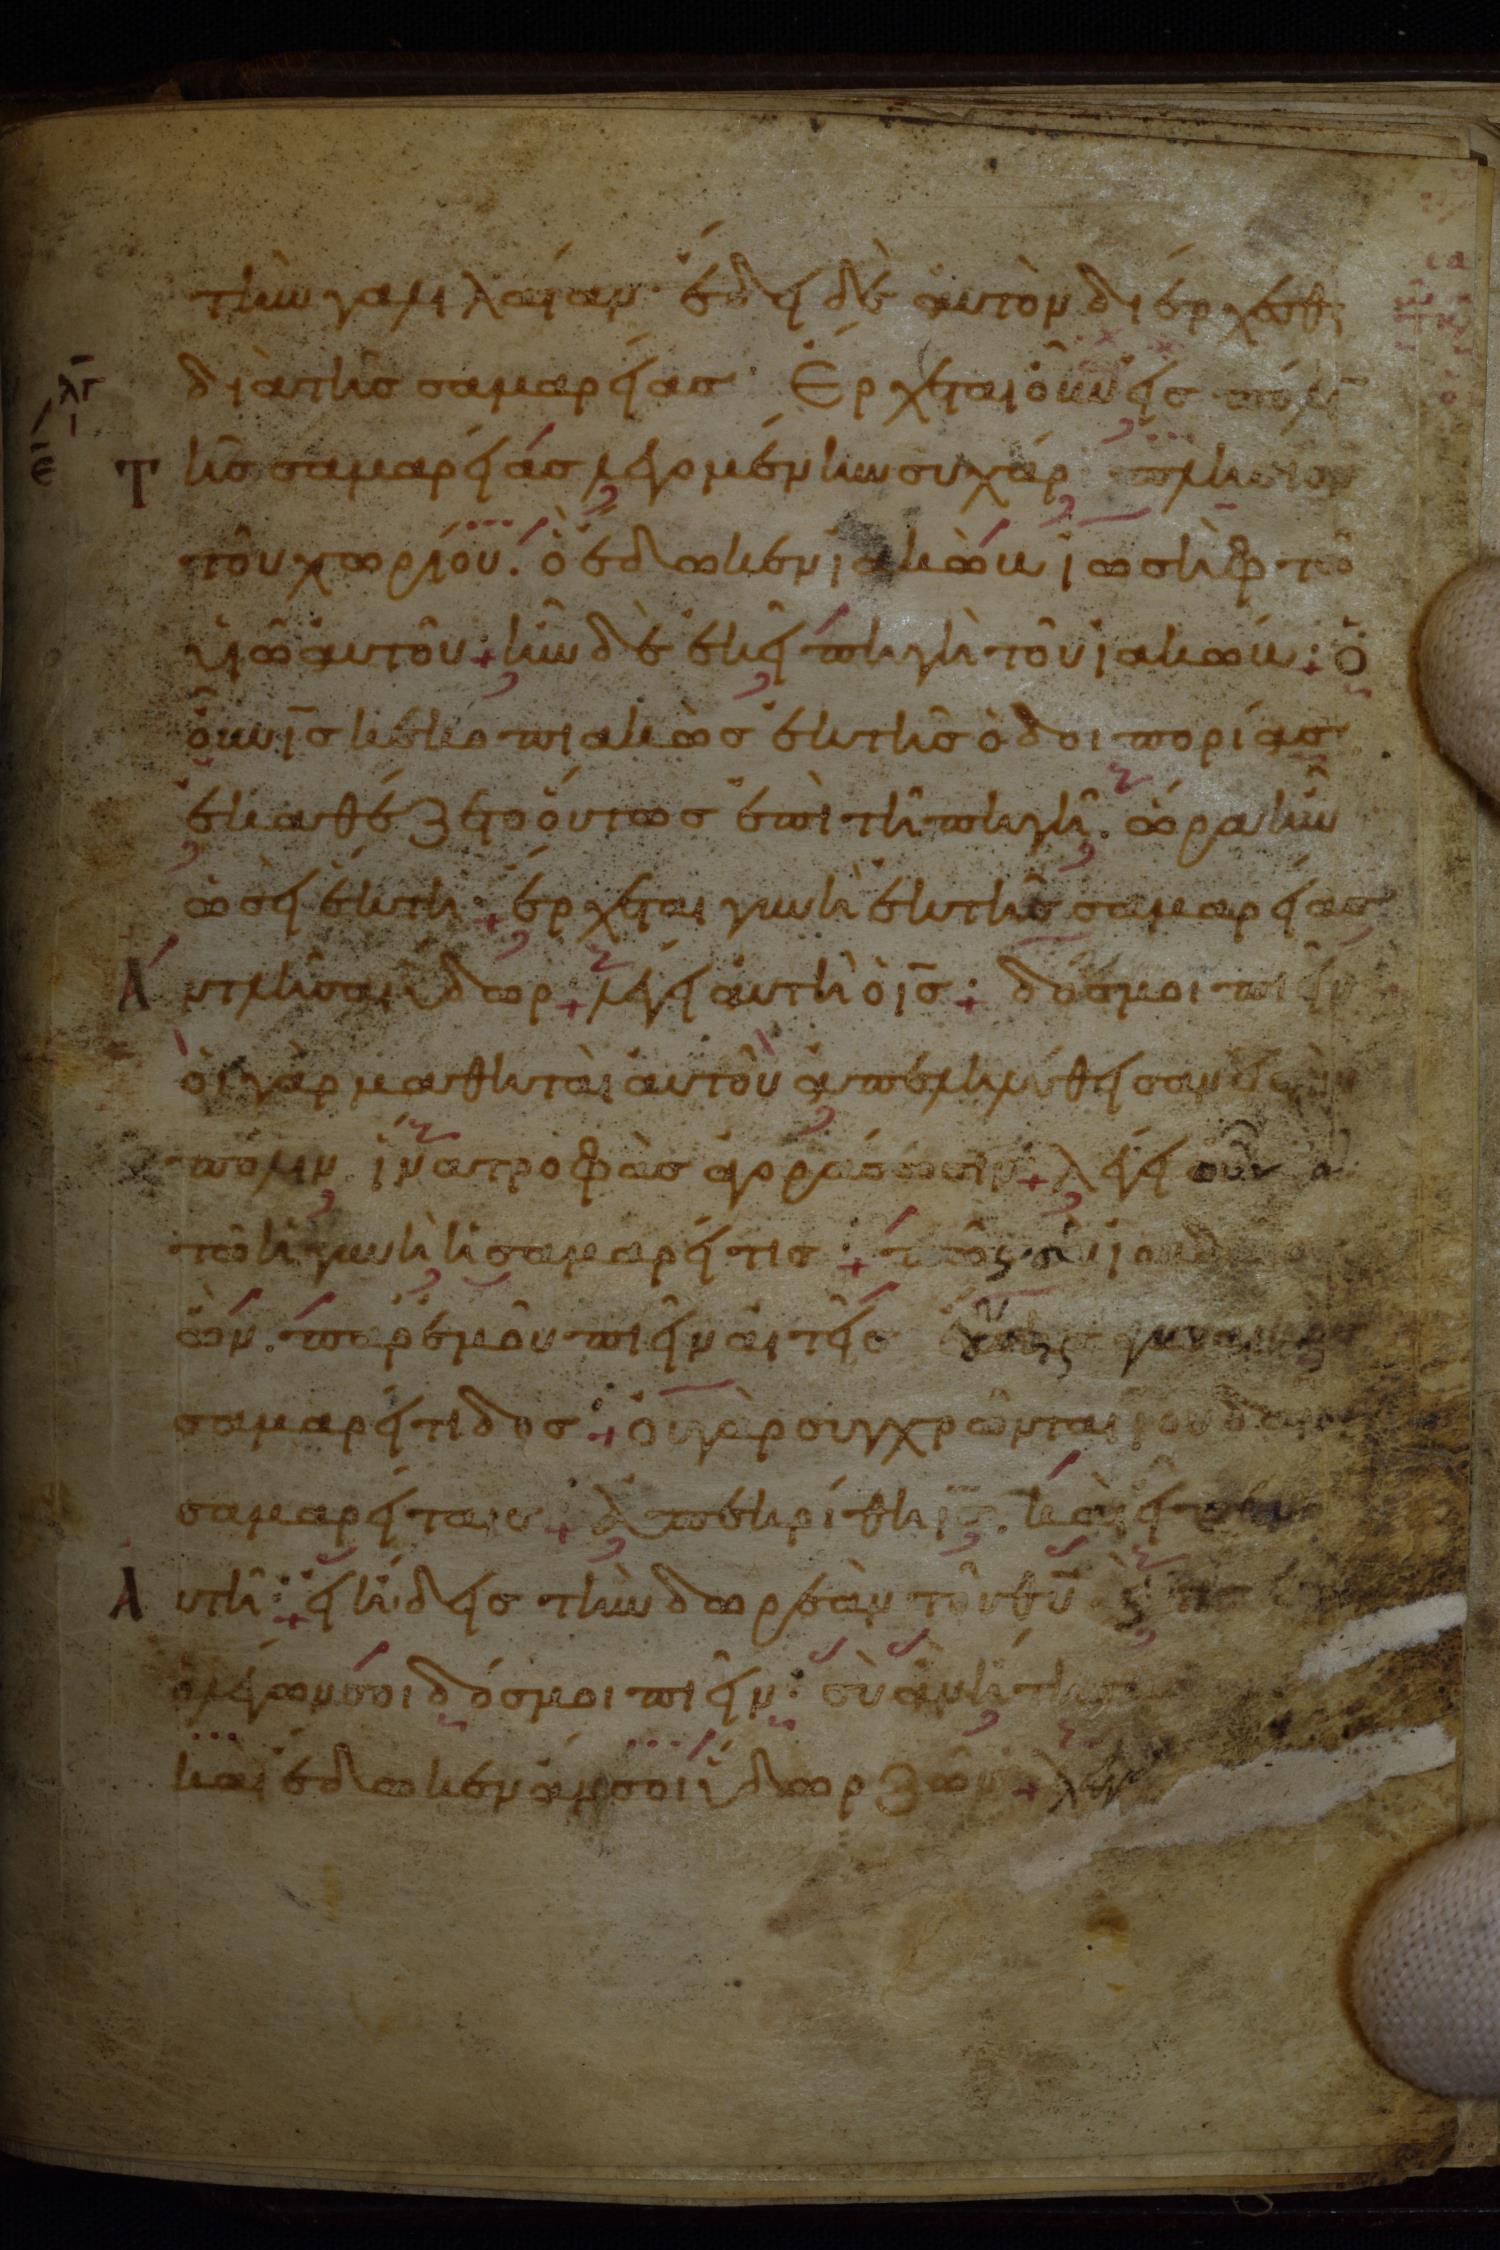 τὴν γαλιλαίαν· ἔδει δὲ ἀυτὸν διέρχεσθαι
διὰ τῆς σαμαρείας· Ἔρχεται ὁ ις εἰς πόλιν
λγ
ι
ε
Τῆς σαμαρείας λεγομένην συχάρ· πλησίον
τοῦ χωρίου. ὃ ἔδωκεν ἰακὼβ ἰωσὴφ τῶ
ὑιῶ ἀυτοῦ· ἦν δὲ ἐκεῖ πηγὴ τοῦ ἰακώβ· ὁ
οὖν ις κεκοπιακὼς ἐκ τῆς ὁδοιπορίας
ἐκαθέζετο ὅυτως ἐπὶ τῆ πηγῆ. ὥρα ἦν
ὡσεὶ ἕκτη· ἔρχεται γυνὴ ἐκ τῆς σαμαρείας
Ἀντλῆσαι ὕδωρ· λέγει ἀυτὴ ὁ ις· δός μοι πιεῖν
ὁι γὰρ μαθηταὶ ἀυτοῦ ἀπεληλύθεισαν
πόλιν ἵνα τροφὰς ἀγοράσωσιν· λέγει οὖν
τῶ ἡ γυνὴ ἡ σαμαρείτις· πῶς σὺ
ὢν. παρ' ἐμοῦ πιεῖν αἰτεῖς γυναικὸς
σαμαρείτιδος· οὐ γὰρ συγχρῶνται ἰουδαῖοι
σαμαρείταις· ἀπεκρίθη ις. καὶ εἶπεν
Ἀυτῆ· εἰ ἤδεις τὴν δωρεὰν τοῦ θυ
ὁ λέγων σοι δός μοι πιεῖν· σὺ ἂν ἤτησας
καὶ ἔδωκεν ἄν σοι ὕδωρ ζῶν· λέγει